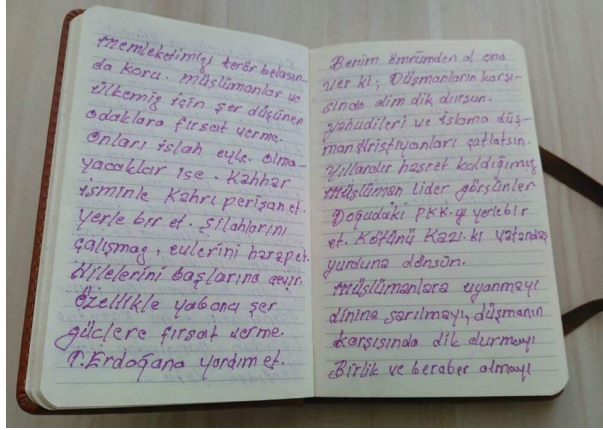 Memleketimizi terör belasın-
da koru. Müslümanlar ve
ülkemiz için şer düşünen
odaklara fırsat verme.
Onları islah eyle. Olma-
yacaklar ise. Kahhar
isminle Kahrı perişan et.
Yerle bir et. Silahlarını
çalışmaz, evlerini harap et.
Hilelerini başlarına çevir.
Özellikle yabancı şer
güclere fırsat verme.
T. Erdoğana yardım et.
Benim ömrümden al ona
ver ki, Düşmanların karşı-
sında dim dik dursun.
Yahudileri ve islama düş-
man Hristiyanları çatlatsın.
Yıllardır hasret kaldığımız
Müslüman lider görsünler.
Doğudaki PKK-yı yerlebir
et. Kötünü Kazı. ki vatandaş
yurduna dönsün.
Müslümanlara uyanmayı
dinine sarılmayı, düşmanın
karşısında dik durmayı
Birlik ve beraber olmayı